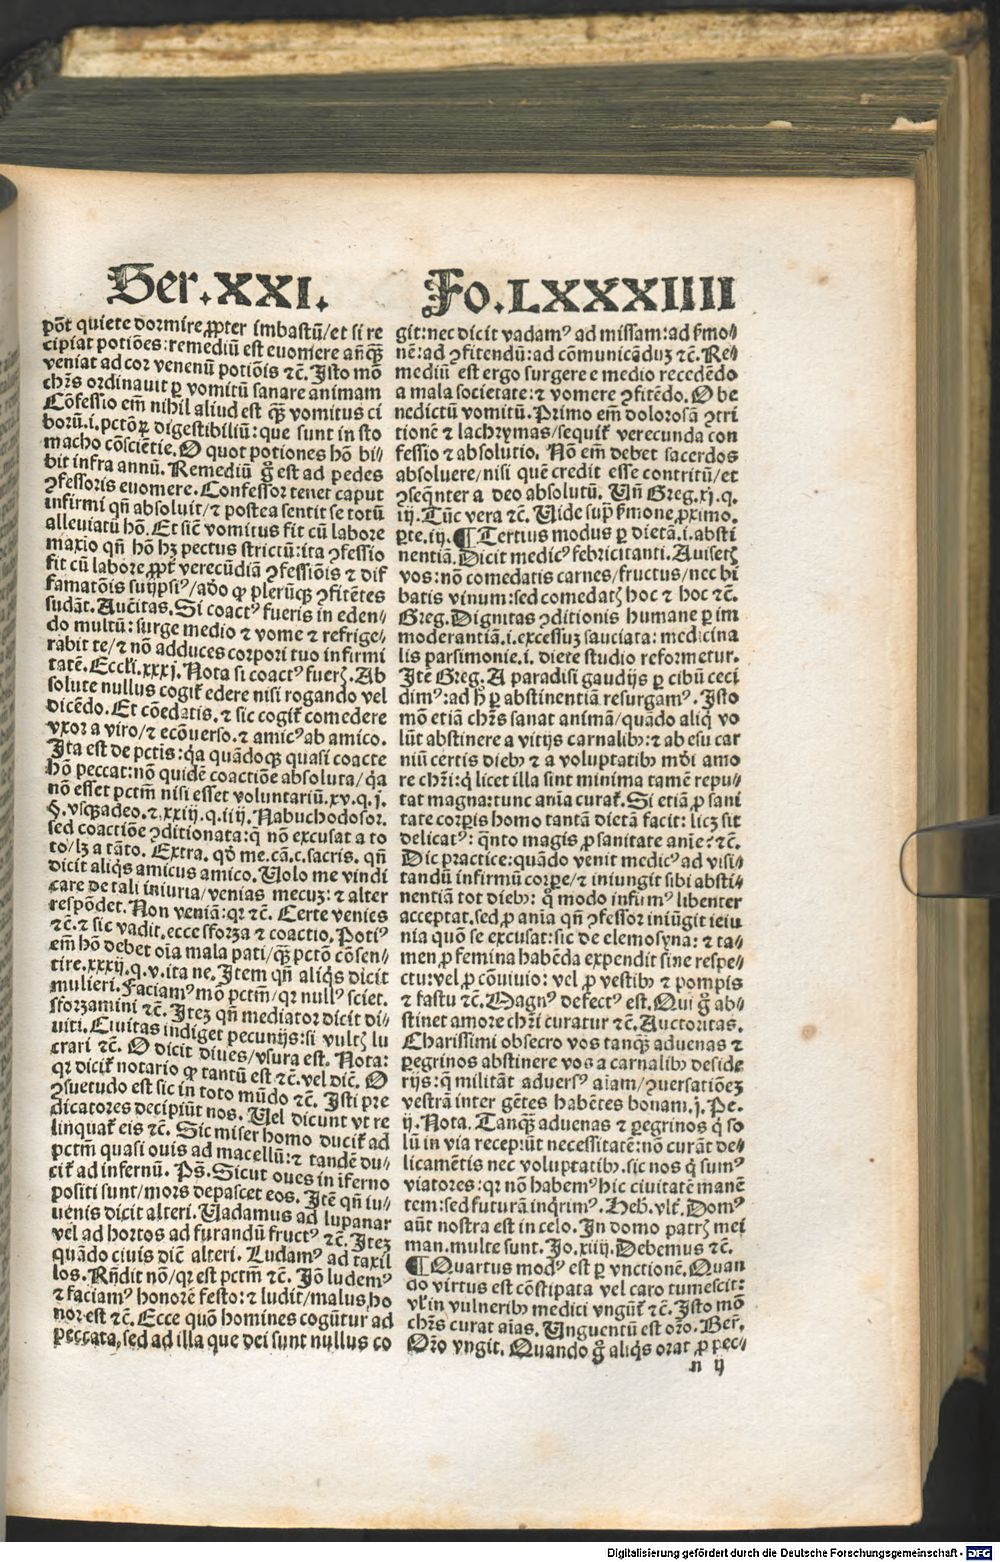 Ser.XXI.
Fo.LXXXIIII
põt quiete dormire ꝓpter imbastũ/et si re
cipiat potiões: remediũ est euomere añq̃ꝫ
veniat ad cor venenũ potiõis ⁊c̃. Isto mõ
chr̃s ordinauit ꝑ vomitũ sanare animam
Cõfessio em̃ nihil aliud est q̃ꝫ vomitus ci
borũ.i.pctõꝝ digestibiliũ: que sunt in sto
macho cõsciẽtie. O quot potiones hõ bi⸗
bit infra annũ. Remediũ g̃ est ad pedes
ꝯfessoris euomere. Confessor tenet caput
infirmi qñ absoluit/⁊ postea sentit se totũ
alleuiatũ hõ. Et sic̃ vomitus fit cũ labore
maxĩo qñ hõ hꝫ pectus strictũ: ita ꝯfessio
fit cũ labore ꝓpt̃ verecũdiã ꝯfessiõis ⁊ dif
famatõis suijpsiꝰ/adõ ꝙ plerũq̃ꝫ ꝯfitẽtes
sudãt. Auc̃itas. Si coactꝰ fueris in eden⸗
do multũ: surge medio ⁊ vome ⁊ refrige⸗
rabit te/⁊ nõ adduces corpori tuo infirmi
tatẽ. Eccli.xxxj. Nota si coactꝰ fuerꝭ. Ab
solute nullus cogit̃ edere nisi rogando vel
dicẽdo. Et cõedatis. ⁊ sic cogit̃ comedere
vxor a viro/⁊ ecõuerso. ⁊ amicꝰ ab amico.
Ita est de pctis: q̃a quãdoq̃ꝫ quasi coacte
hõ peccat: nõ quidẽ coactiõe absoluta/q̃a
nõ esset pctm̃ nisi esset voluntariũ.xv.q.j.
§.vsq̃ꝫadeo.⁊.xxiij.q.iiij. Nabuchodosor.
sed coactiõe ꝯditionata: q̃ nõ excusat a to
to/lꝫ a tãto. Extra. qd̃ me.cã.c.sacris. qñ
dicit aliq̃s amicus amico. Uolo me vindi
care de tali iniuria/venias mecuꝫ: ⁊ alter
respõdet. Non veniã: qꝛ ⁊c̃. Certe venies
⁊c̃.⁊ sic vadit.ecce sforza ⁊ coactio. Potiꝰ
em̃ hõ debet oĩa mala pati/q̃ꝫ pctõ cõsen⸗
tire.xxxij.q.v.ita ne. Item qñ aliq̃s dicit
mulieri. Faciamꝰ mõ pctm̃/qꝛ nullꝰ sciet.
sforzamini ⁊c̃. Iteꝫ qñ mediator dicit di⸗
uiti. Ciuitas indiget pecunijs: si vultꝭ lu
crari ⁊c̃. O dicit diues/vsura est. Nota:
qꝛ dicit̃ notario ꝙ tantũ est ⁊c̃.vel dic̃. O
ꝯsuetudo est sic in toto mũdo ⁊c̃. Isti pre
dicatores decipiũt nos. Uel dicunt vt re
linquat̃ eis ⁊c̃. Sic miser homo ducit̃ ad
pctm̃ quasi ouis ad macellũ: ⁊ tandẽ du⸗
cit̃ ad infernũ. Ps̃. Sicut oues in ĩferno
positi sunt/mors depascet eos. Itẽ qñ iu⸗
uenis dicit alteri. Uadamus ad lupanar
vel ad hortos ad furandũ fructꝰ ⁊c̃. Iteꝫ
quãdo ciuis dic̃ alteri. Ludamꝰ ad taxil
los. Rñdit nõ/qꝛ est pctm̃ ⁊c̃. Iõ ludemꝰ
⁊ faciamꝰ honorẽ festo: ⁊ ludit/malus ho
nor est ⁊c̃. Ecce quõ homines cogũtur ad
peccata, sed ad illa que dei sunt nullus co
git: nec dicit vadamꝰ ad missam: ad ẜmo⸗
nẽ: ad ꝯfitendũ: ad cõmunicãduꝫ ⁊c̃. Re⸗
mediũ est ergo surgere e medio recedẽdo
a mala societate: ⁊ vomere ꝯfitẽdo. O be
nedictũ vomitũ. Primo em̃ dolorosã ꝯtri
tionẽ ⁊ lachrymas/sequit̃ verecunda con
fessio ⁊ absolutio. Nõ em̃ debet sacerdos
absoluere/nisi quẽ credit esse contritũ/et
ꝯseq̃nter a deo absolutũ. Uñ Greg.xj.q.
iij. Tũc vera ⁊c̃. Uide supͣ ẜmone ꝓximo.
ꝑte.ij. ¶ Tertius modus ꝑ dietã.i.absti
nentiã. Dicit medicꝰ febricitanti. Auisetꝭ
vos: nõ comedatis carnes/fructus/nec bi
batis vinum: sed comedatꝭ hoc ⁊ hoc ⁊c̃.
Greg. Dignitas ꝯditionis humane ꝑ im
moderantiã.i.excessuꝫ sauciata: medicina
lis parsimonie.i. diete studio reformetur.
Itẽ Greg. A paradisi gaudijs ꝑ cibũ ceci
dimꝰ: ad h̃ ꝑ abstinentiã resurgamꝰ. Isto
mõ etiã chr̃s sanat animã/quãdo aliq̃ vo
lũt abstinere a vitijs carnalibꝫ: ⁊ ab esu car
niũ certis diebꝫ ⁊ a voluptatibꝫ mũdi amo
re chr̃i: q̃ licet illa sint minima tamẽ repu⸗
tat magna: tunc anĩa curat̃. Si etiã ꝓ sani
tate corꝑis homo tantã dietã facit: licꝫ sit
delicatꝰ: q̃nto magis ꝓ sanitate anĩe? ⁊c̃.
Dic practice: quãdo venit medicꝰ ad visi⸗
tandũ infirmũ corꝑe/⁊ iniungit sibi absti⸗
nentiã tot diebꝫ: q̃ modo infirmꝰ libenter
acceptat. sed ꝓ anĩa qñ ꝯfessor iniũgit ieiu
nia quõ se excusat: sic de elemosyna: ⁊ ta⸗
men ꝓ femina habẽda expendit sine respe⸗
ctu: vel ꝓ cõuiuio: vel ꝓ vestibꝫ ⁊ pompis
⁊ fastu ⁊c̃. Magnꝰ defectꝰ est. Qui g̃ ab⸗
stinet amore chr̃i curatur ⁊c̃. Auctoritas.
Charissimi obsecro vos tanq̃ꝫ aduenas ⁊
ꝑegrinos abstinere vos a carnalibꝫ deside
rijs: q̃ militãt aduersꝰ aĩam/ꝯuersatiõeꝫ
vestrã inter gẽtes habẽtes bonam.j.Pe.
ij. Nota. Tanq̃ꝫ aduenas ⁊ ꝑegrinos q̃ so
lũ in via recepiũt necessitatẽ: nõ curãt de⸗
licamẽtis nec voluptatibꝫ. sic nos q̃ sumꝰ
viatores: qꝛ nõ habemꝰ hic ciuitatẽ manẽ
tem: sed futurã inq̃rimꝰ. Heb.vlt̃. Domꝰ
aũt nostra est in celo. In domo patrꝭ mei
man.multe sunt. Io.xiiij. Debemus ⁊c̃.
¶ Quartus modꝰ est ꝑ vnctionẽ. Quan
do virtus est cõstipata vel caro tumescit:
vl̃ in vulneribꝫ medici vngũt̃ ⁊c̃. Isto mõ
chr̃s curat aĩas. Unguentũ est or̃o. Ber̃.
Or̃o vngit. Quando g̃ aliq̃s orat ꝓ pec⸗
n ij
Digitalisierung gefördert durch die Deutsche Forschungsgemeinschaft - DFG